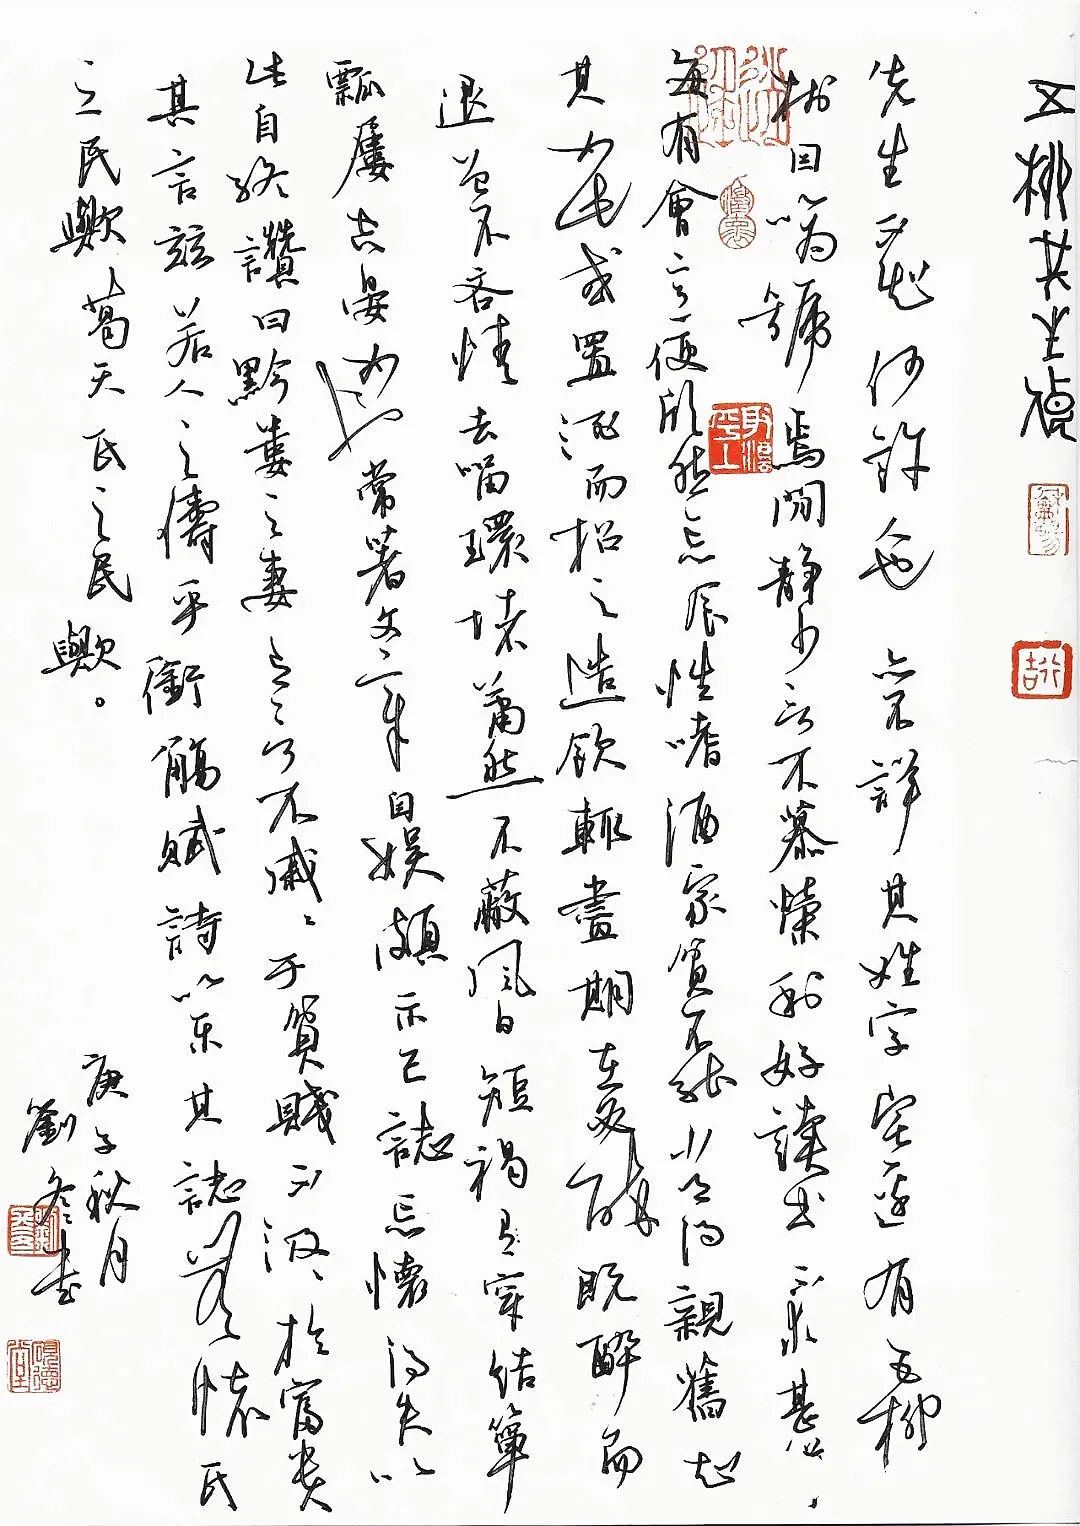 五柳先生傳
先生不知何許人也亦不詳其姓字宅邊有五柳
樹因以為號焉閒靜少言不慕榮利好讀書不求甚解，
每有會意便欣然忘食性嗜酒家貧不能常得親舊知
其如此或置酒而招之造飲輒盡期在必醉既醉而
退曾不吝情去留環堵蕭然不蔽風日短褐穿結簞
瓢屢空晏如也常著文章自娛頗示己誌忘懷得失以
此自終讚曰黔婁之妻有言不戚戚于貧賤不汲汲於富貴
其言茲若人之儔乎銜觴賦詩以樂其誌無懷氏
之民歟葛天氏之民歟。
庚子秋月
劉冬書